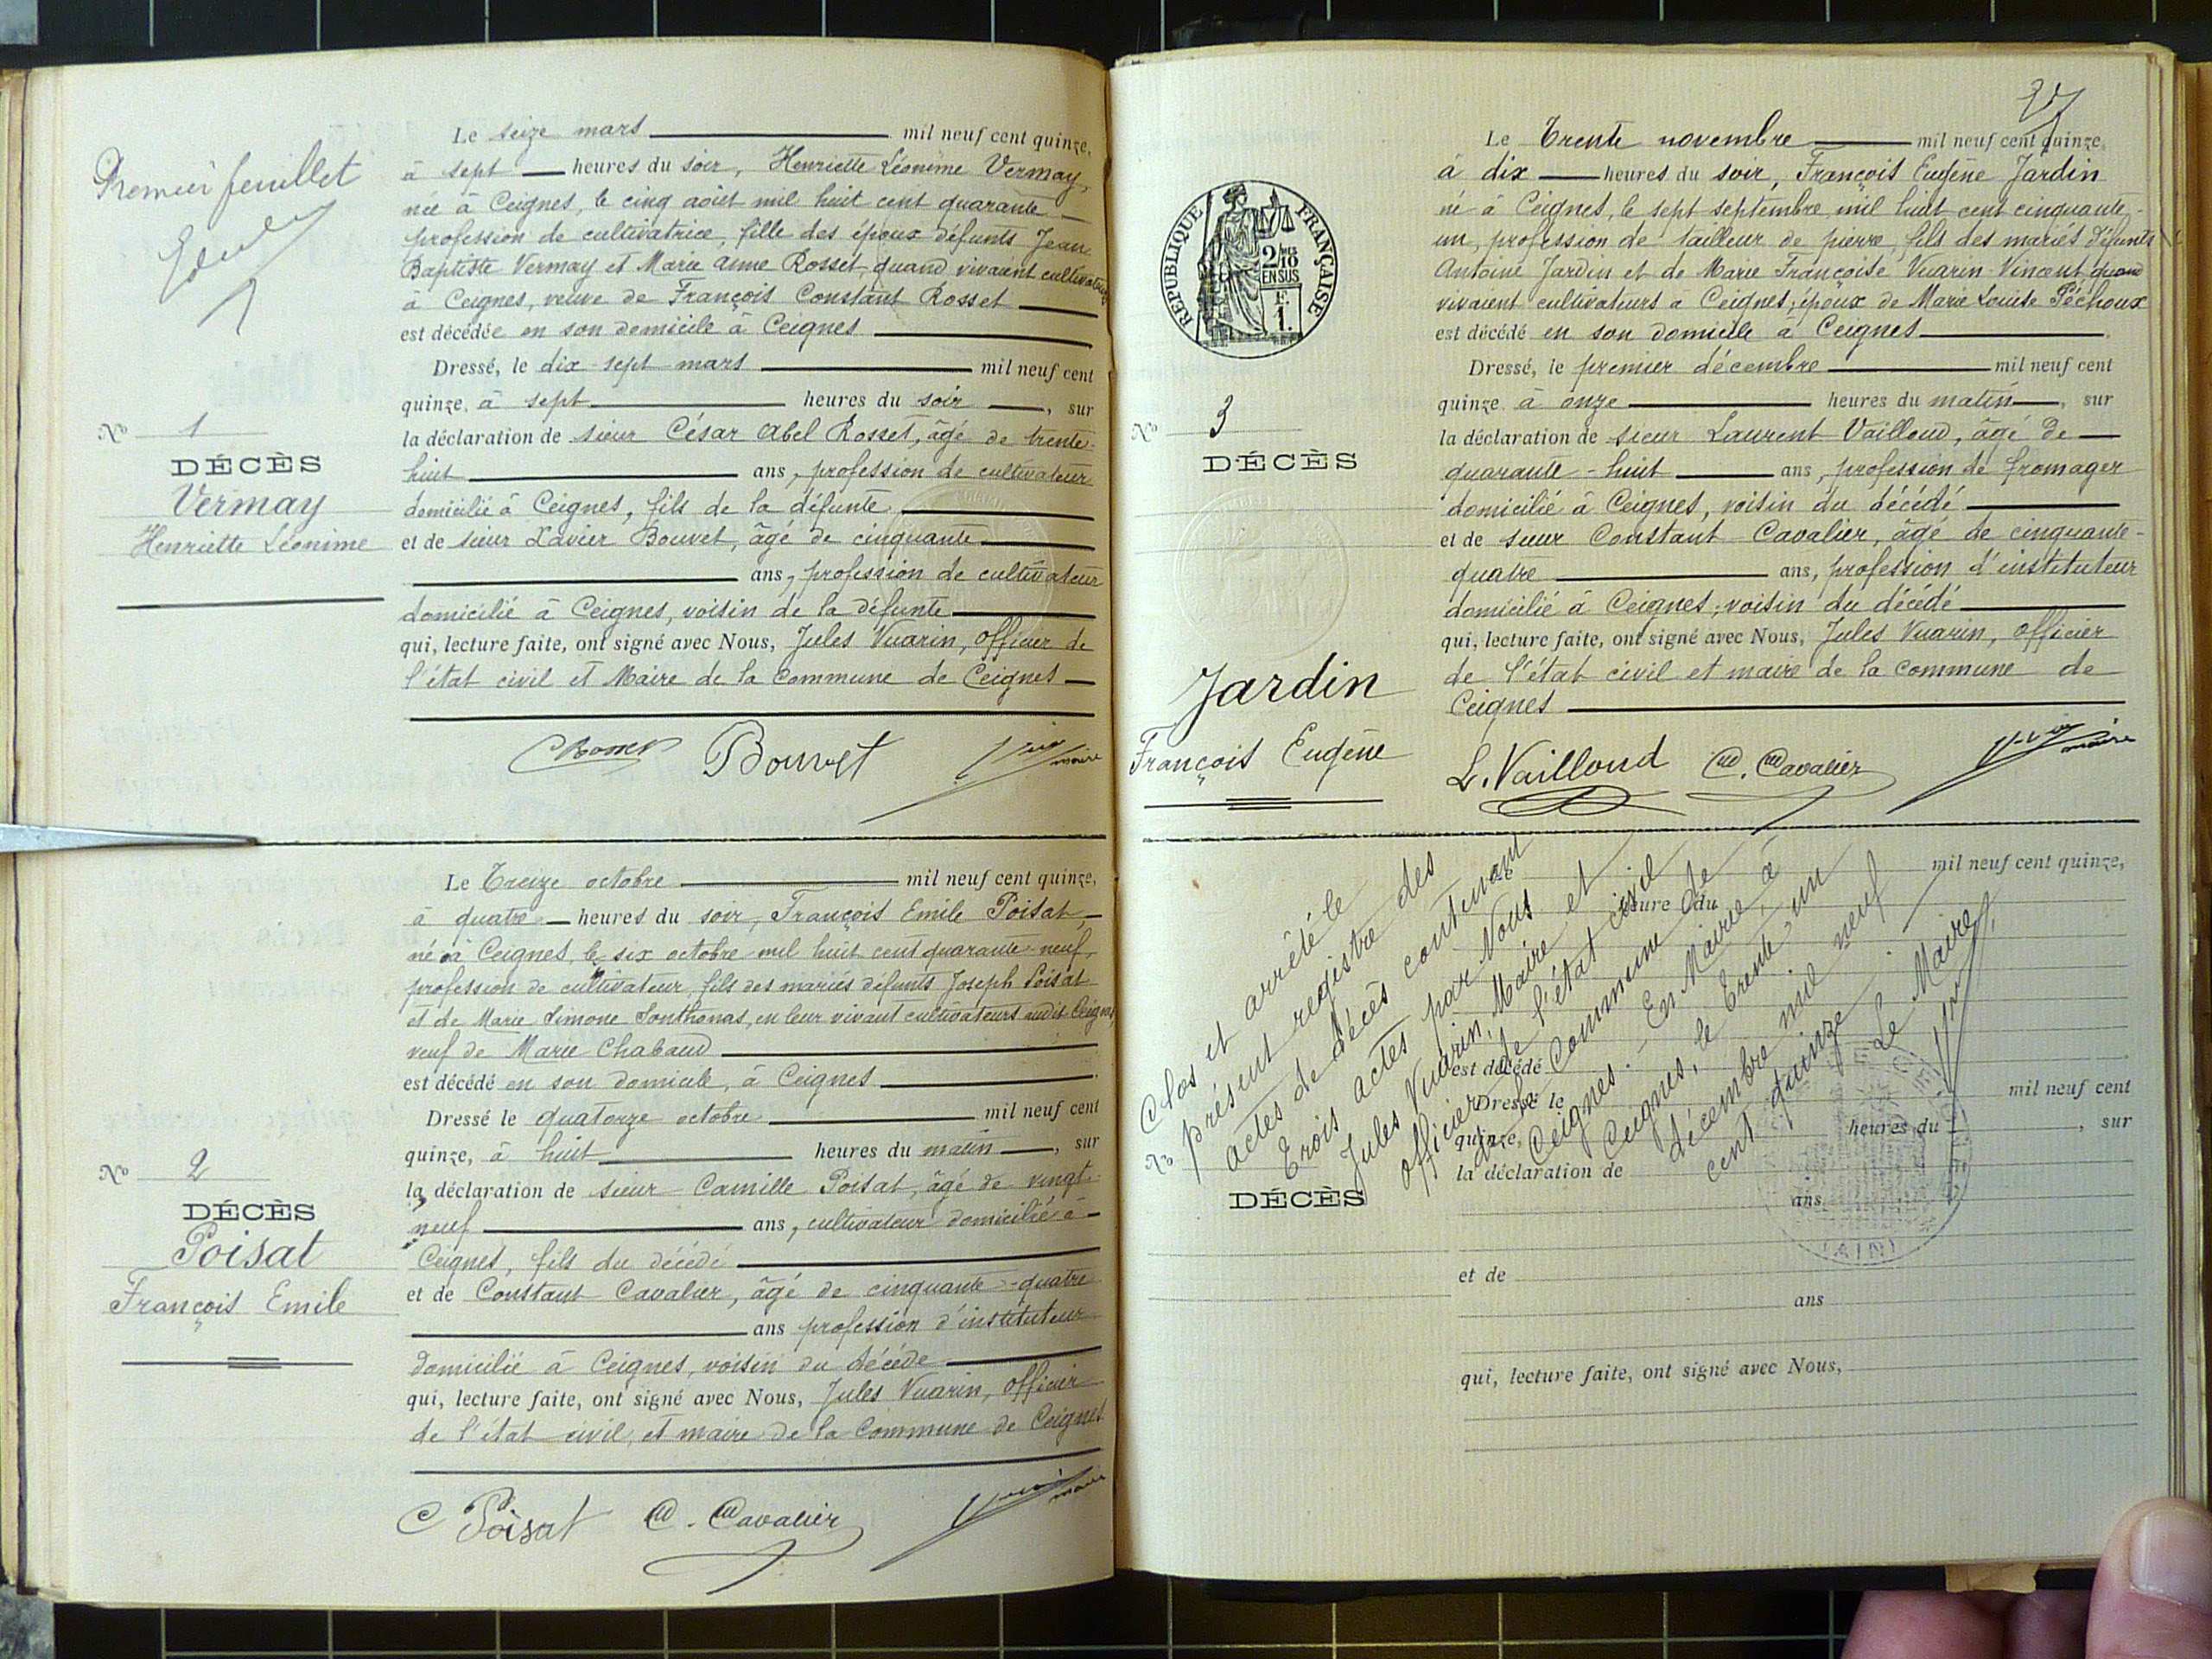 Premier feuillet
Le seize mars mil neuf cent quinze,
à sept heures du soir, Henriette Léonime Vermay,
née à Ceignes, le cinq août mil huit cent quarante
profession de cultivatrice, fille des époux défunts Jean
Baptiste Vermay et Marie Anne Rosset, quand vivaient cultivateurs
à Ceignes, veuve de François Constant Rosset
est décédée en son domicile à Ceignes
Dressé, le dix-sept mars mil neuf cent
quinze, à sept heures du soir, sur
No 1
la déclaration de sieur César Abel Rosset, âgé de trente-
DÉCÈS
huit ans, profession de cultivateur
Vermay
domicilié à Ceignes, fils de la défunte
Henriette Léonime
et de sieur Xavier Bouvet, âgé de cinquante
ans, profession de cultivateur
domicilié à Ceignes, voisin de la défunte
qui, lecture faite, ont signé avec Nous, Jules Vuarin, Officier de
l'état civil et Maire de la Commune de Ceignes
Bouvet
maire
Le Treize octobre mil neuf cent quinze,
à quatre heures du soir, François Emile Poisat,
né à Ceignes, le six octobre mil huit cent quarante-neuf,
profession de cultivateur, fils des mariés défunts Joseph Poisat
et de Marie Simone Sonthonas, en leur vivant cultivateurs audit Ceignes,
veuf de Marie Chabaud
est décédé en son domicile, à Ceignes
Dressé le quatorze octobre mil neuf cent
quinze, à huit heures du matin, sur
No 2
la déclaration de sieur Camille Poisat, âgé de vingt-
DÉCÈS
neuf ans, cultivateur domicilié à
Poisat
Ceignes, fils du décédé
François Emile
et de Constant Cavalier, âgé de cinquante-quatre
ans profession d'instituteur
domicilié à Ceignes, voisin du décédé
qui, lecture faite, ont signé avec Nous, Jules Vuarin, Officier
de l'état civil, et maire de la Commune de Ceignes
C Poisat Ct. Cavalier
maire
RÉPUBLIQUE FRANÇAISE
2/10
EN SUS
F.
1.
Le Trente novembre mil neuf cent quinze,
à dix heures du soir, François Eugène Jardin
né à Ceignes, le sept septembre mil huit cent cinquante-
un, profession de tailleur de pierre, fils des mariés défunts
Antoine Jardin et de Marie Françoise Vuarin-Vincent quand
vivaient cultivateurs à Ceignes, époux de Marie Louise Péchoux
est décédé en son domicile à Ceignes
Dressé, le premier décembre mil neuf cent
quinze à onze heures du matin, sur
No 3
la déclaration de sieur Laurent Vailloud, âgé de
DÉCÈS
quarante-huit ans, profession de fromager
domicilié à Ceignes, voisin du décédé
et de sieur Constant Cavalier, âgé de cinquante-
quatre ans, profession d'instituteur
domicilié à Ceignes, voisin du décédé
qui, lecture faite, ont signé avec Nous, Jules Vuarin, Officier
de l'état civil et maire de la commune de
Ceignes
Jardin
François Eugène
L. Vailloud Ct. Cavalier
maire
Clos et arrêté le
présent registre des
actes de décès contenant
Trois actes par Nous
Jules Vuarin, Maire et
officier de l'état civil
de la Commune de
Ceignes. - En Mairie à
Ceignes, le Trente un
décembre mil neuf
cent quinze.
Le Maire,
mil neuf cent quinze,
heure du
est décédé
Dressé le mil neuf cent
quinze, heures du , sur
No
la déclaration de
DÉCÈS
ans
et de
ans
qui, lecture faite, ont signé avec Nous,
(AIN)